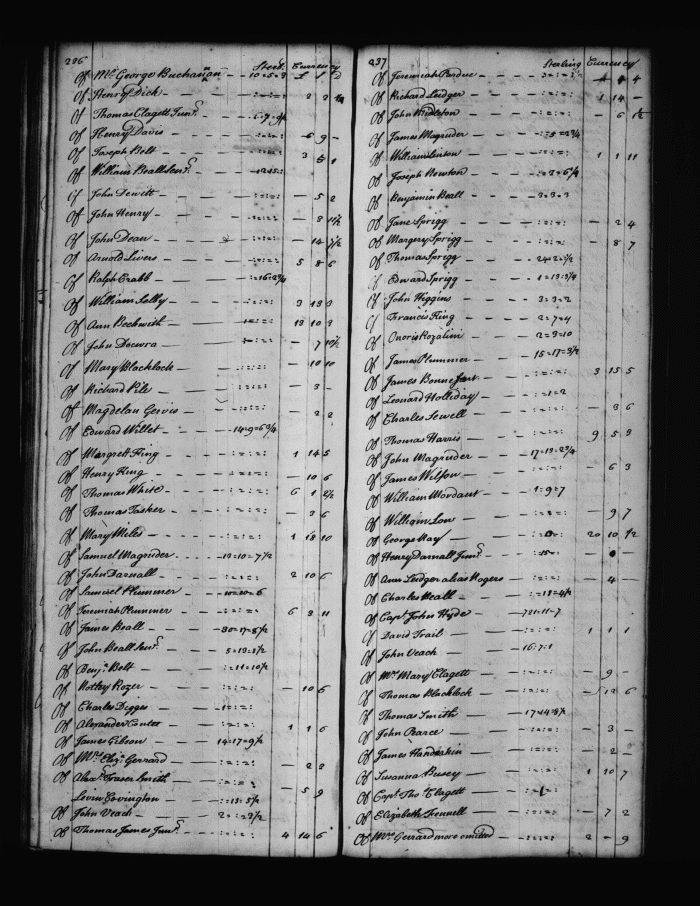 236 Sterl. Currency
Of Mr. George Buchanan 10=5=9 £ 1 2
Of Henry Dick 2 2
Of Thomas Clagett Junr.
Of Henry Davis 6 9
Of Joseph Belt 3 5 1
Of William Beall Senr.
Of John Dewitt 5 2
Of John Henry 3 11½
Of John Dean 14 7½
Of Arnold Livers 5 8 6
Of Ralph Crabb
Of William Selby 3 19 3
Of Ann Beckwith 13 10 3
Of John Docwra 7 10½
Of Mary Blacklock 10 10
Of Richard Pile 3
Of Magdelan Gervis 2 2
Of Edward Willet 14=9=6¾
Of Margrett King 1 14 5
Of Henry King 10 6
Of Thomas White 6 1 2½
Of Thomas Tasker 3 6
Of Mary Miles 1 18 10
Of Samuel Magruder 13=10=7½
Of John Darnall 2 10 6
Of Samuel Plummer
Of Jeremiah Plummer 6 3 11
Of James Beall 30=17=8½
Of John Beall Senr. 5=13=3½
Of Benja. Belt
Of Notley Rozer 10 6
Of Charles Digges
Of Alexander Contee 1 1 6
Of James Gibson 14=17=9½
Of Mrs. Eliz. Gerrard 2 3
Of Alexr. Fraser Smith
Levin Covington 5 9
Of John Veach
Of Thomas James Junr. 4 14 6
237 Sterling Currency
Of Jeremiah Pardue 4
Of Richard Ludger 1 14 -
Of John Midleton 6 ½
Of James Magruder
Of William Linton 1 1 11
Of Joseph Newton
Of Benjamin Beall 3=3=3
Of Jane Sprigg 2 4
Of Margery Sprigg 8 7
Of Thomas Sprigg 24=2=½
Of Edward Sprigg 1=13=3¼
Of John Higgins 3=3=2
Of Francis King 2=7=4
Of Onoris Rozalini 2=3=10
Of James Plummer 15=17=3½
Of James Bonnefant 3 15 5
Of Leonard Holliday
Of Charles Sewell 3 6
Of Thomas Harris 9 5 3
Of John Magruder 17=13=2¾
Of James Wilson 6 3
Of William Mordaut 1=9=7
Of William Low 9 7
Of George Hay 20 10 ½
Of Henry Darnall Junr.
Of Ann Ludger alias Rogers 4 -
Of Charles Beall
Of Capt. John Hyde 721=11=7
Of David Trail 1 1 1
Of John Veach 16:7:1
Of Mrs. Mary Clagett 9 -
Of Thomas Blacklock 12 6
Of Thomas Smith
Of John Pearce 3 -
Of James Handerkin 2 -
Of Susanna Busey 1 10 7
Of Capt. Tho. Clagett
Of Elizabeth Fennell 7 2
Of Mrs. Gerrard more omitted 2 - 9